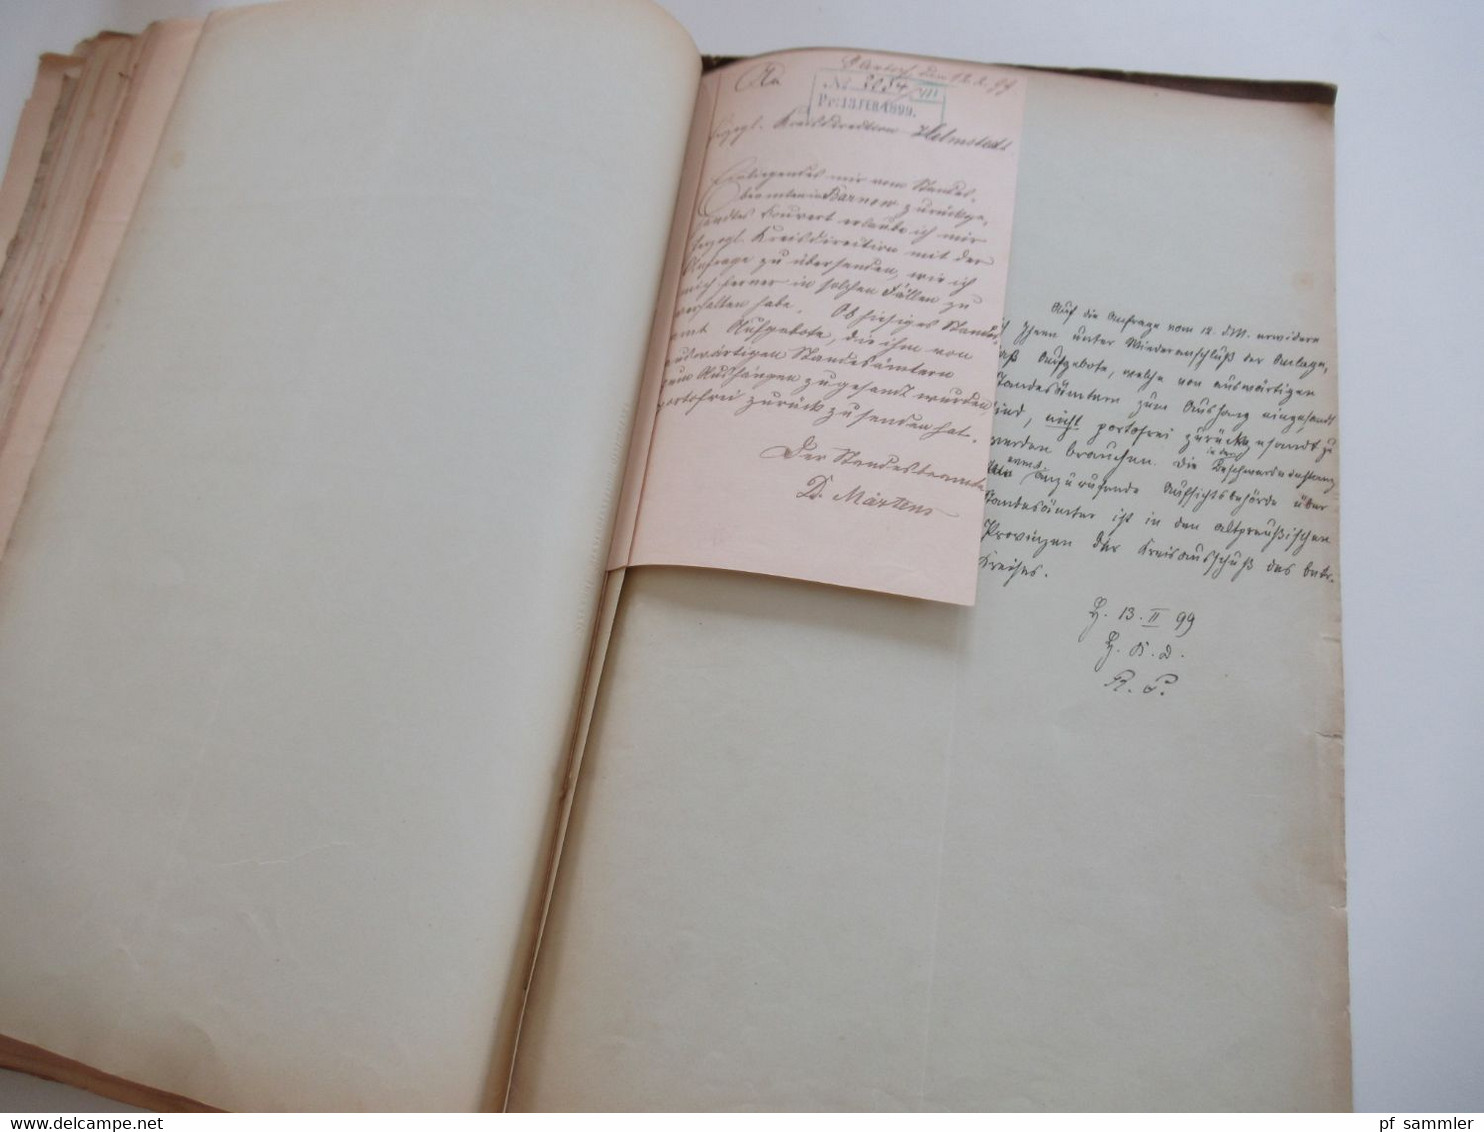 den 12.2.99
An
№ 2054/VII
Pr: 13. FEB. 1899.
Herzogl. Kreisdirection Helmstedt.
Einliegendes mir vom Standes-
beamten in Barnow zurückge-
sandtes Couvert erlaube ich mir
Herzogl. Kreisdirection mit der
Anfrage zu übersenden, wie ich
mich ferner in solchen Fällen zu
verhalten habe. Ob hiesiges Standes-
amt Aufgebote, die ihm von
auswärtigen Standesämtern
zum Aushängen zugesamt wurden,
portofrei zurück zu senden hat.
Der Standesbeamte
D. Märtens
Auf die Anfrage vom 12. d. M. erwidern
ich Ihnen unter Wiederanschluß der Anlage,
daß Aufgebote, welche von auswärtigen
Standesämtern zum Aushang eingesandt
sind, nicht portofrei zurückgesandt zu
werden brauchen. Die in der Beschwerdeinstanz
event. anzurufende Aufsichtsbehörde über
Standesämter ist in den altpreußischen
Provinzen der Kreisausschuß des betr.
Kreises.
H. 13. II 99
H. K. D.
pf sammler